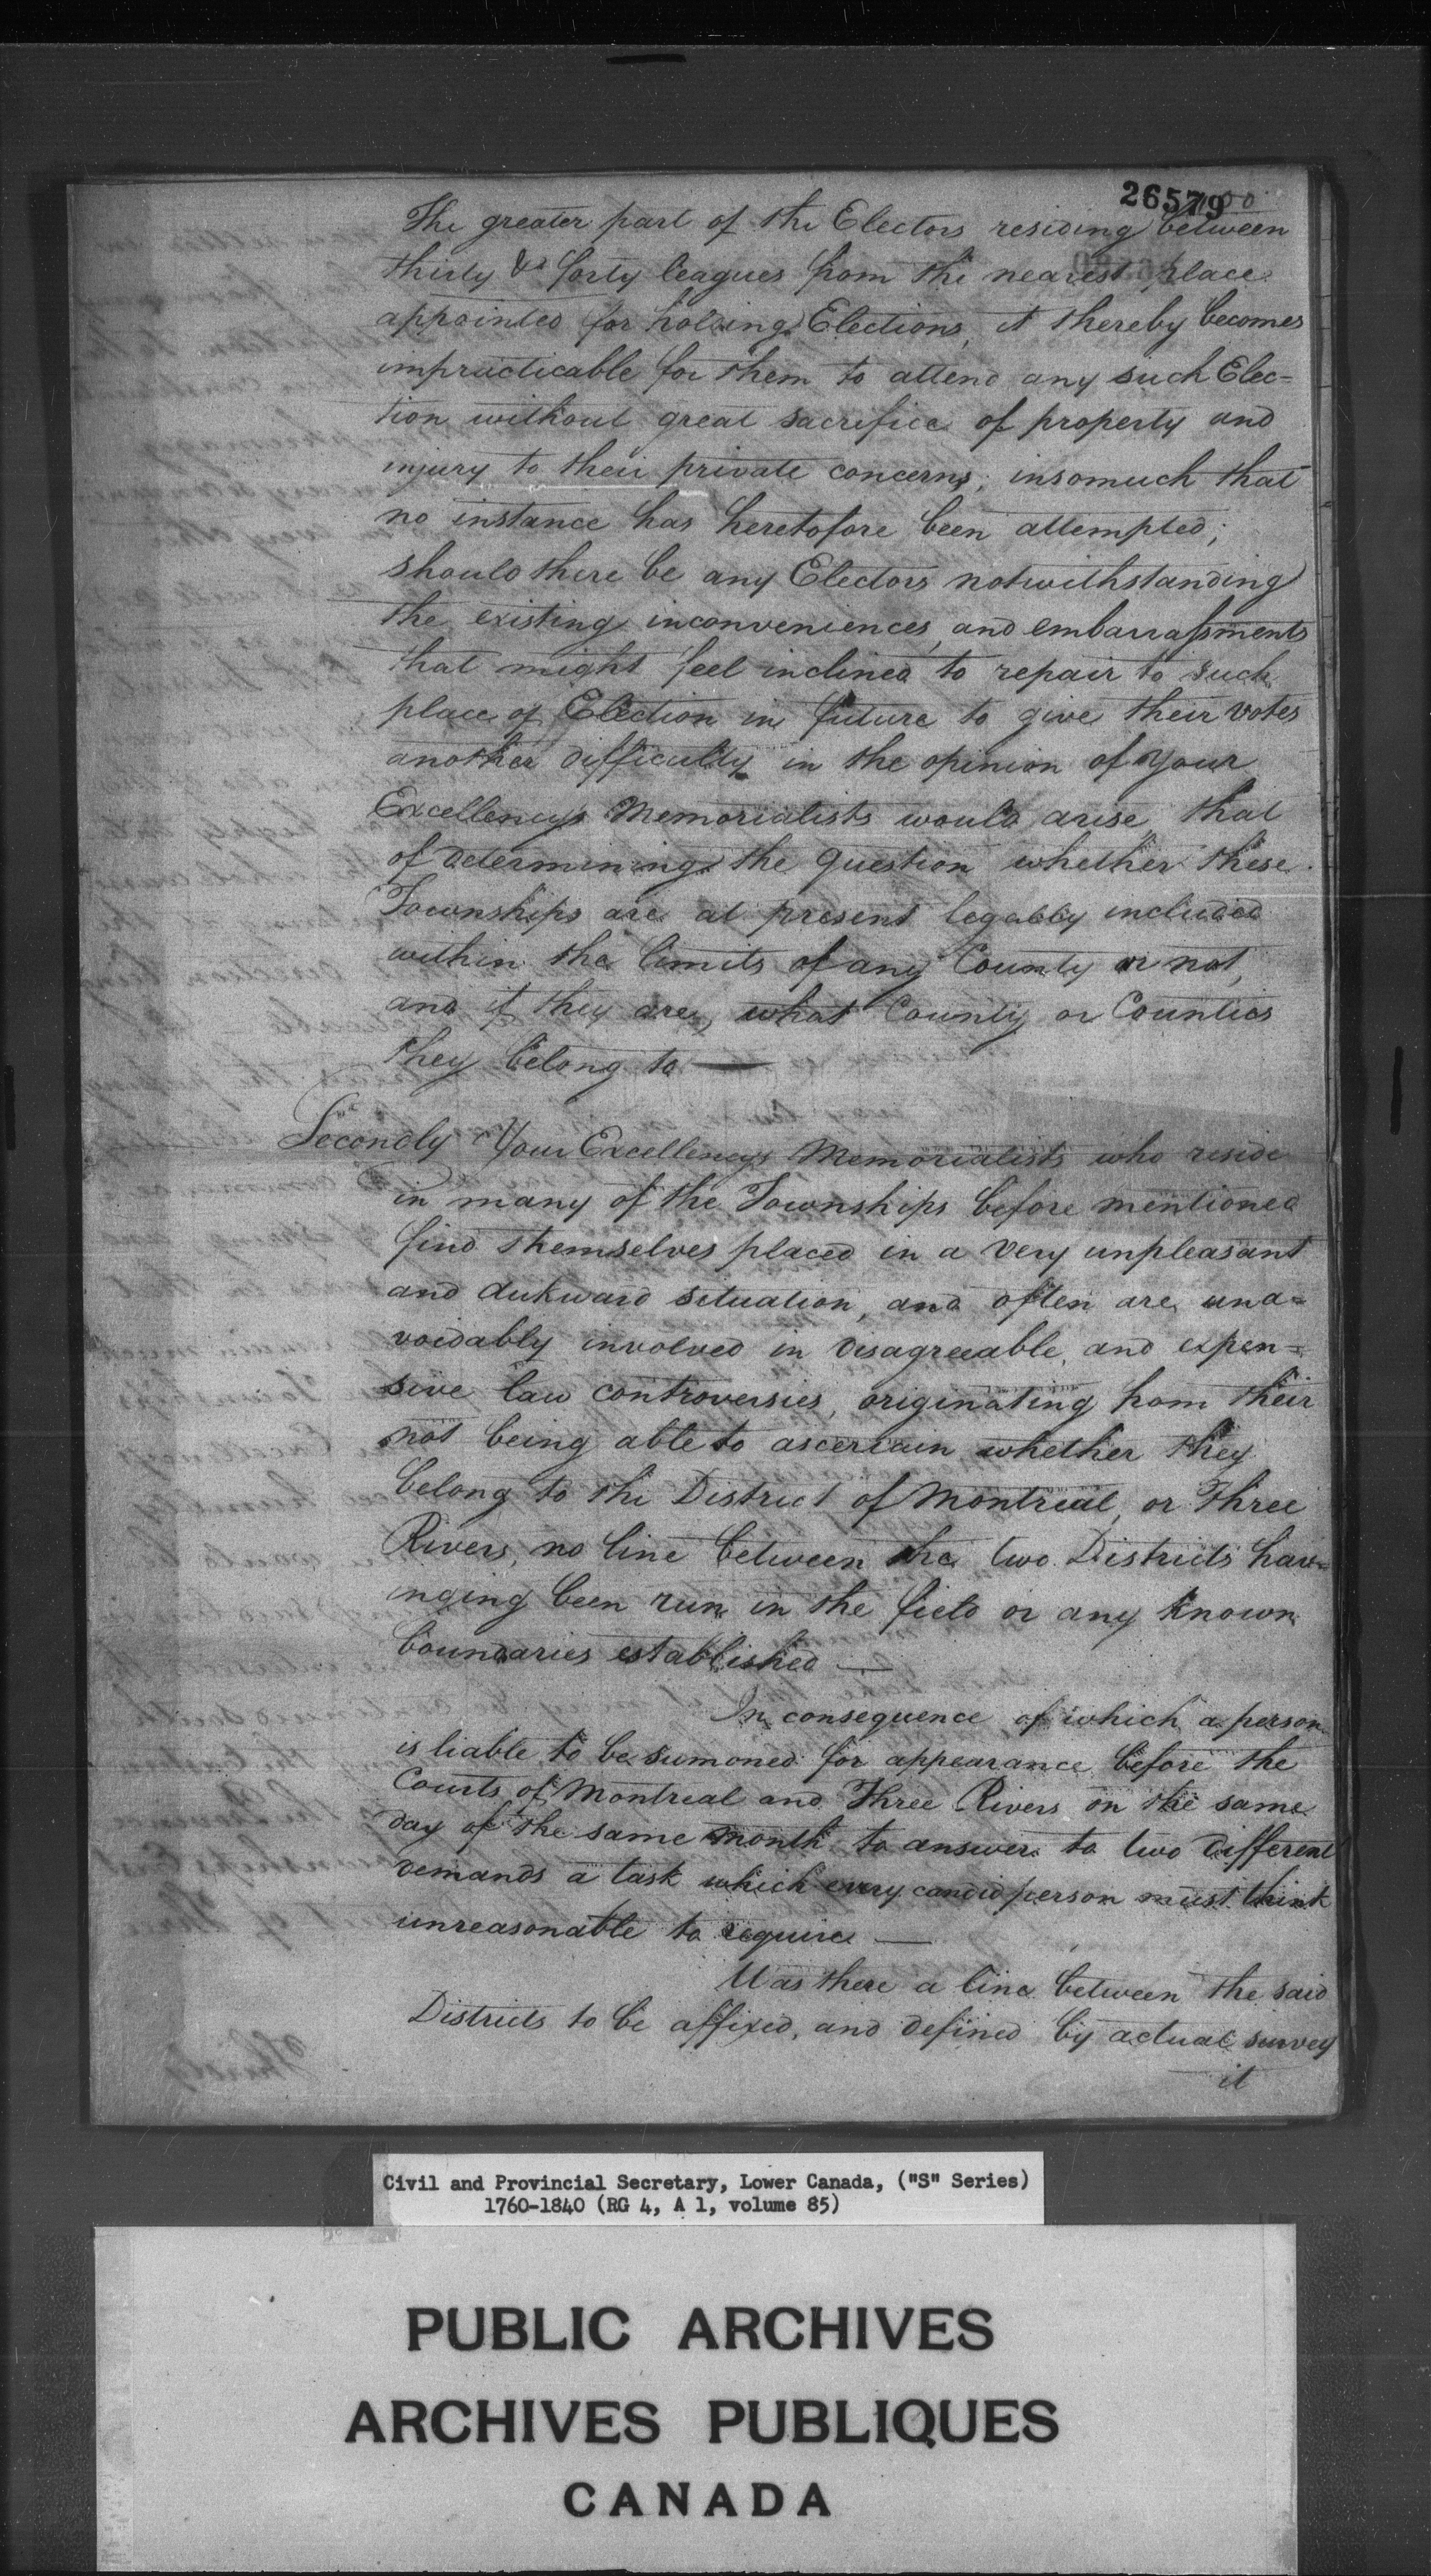 26579
The greater part of the Electors residing between
thirty & forty leagues from the nearest place
appointed for holding Elections, it thereby becomes
impracticable for them to attend any such Elec=
tion without great sacrifice of property and
injury to their private concerns; insomuch that
no instance has heretofore been attempted;
should there be any Electors notwithstanding
the existing inconveniences, and embarrassments
that might feel inclined to repair to such
place of Election in future to give their votes
another difficulty in the opinion of Your
Excellency's Memorialists would arise, that
of determining the question whether these
Townships are at present legally included
within the limits of any County or not,
and if they are, what County or Counties
they belong to —
Secondly Your Excellencys Memorialists who reside
in many of the Townships before mentioned
find themselves placed in a very unpleasant
and aukward situation, and often are una=
voidably involved in disagreeable, and expen=
sive law controversies, originating from their
not being able to ascertain whether they
belong to the District of Montreal, or Three
Rivers, no line between the two Districts hav=
inging been run in the field or any known
boundaries established —
In consequence of which a person
is liable to be sumoned for appearance before the
Courts of Montreal and Three Rivers on the same
day of the same month to answer to two different
demands a task which every candid person must think
unreasonable to require —
Was there a line between the said
Districts to be affixed, and defined by actual survey
it
Civil and Provincial Secretary, Lower Canada, ("S" Series)
1760-1840 (RG 4, A 1, volume 85)
PUBLIC ARCHIVES
ARCHIVES PUBLIQUES
CANADA